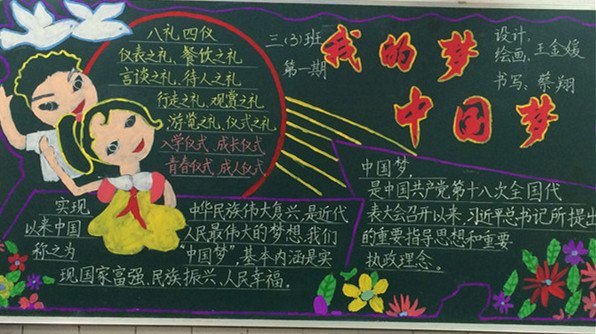 八礼四仪
仪表之礼、餐饮之礼
言谈之礼、待人之礼
行走之礼、观赏之礼
游览之礼、仪式之礼
入学仪式、成长仪式
青春仪式、成人仪式
三(3)班
第一期
我的梦
中国梦
设计:
绘画:王金媛
书写:蔡翔
实现中华民族伟大复兴,是近代
以来中国人民最伟大的梦想,我们
称之为“中国梦”,基本内涵是实
现国家富强、民族振兴、人民幸福。
中国梦,
是中国共产党第十八次全国代
表大会召开以来,习近平总书记所提出
的重要指导思想和重要
执政理念。